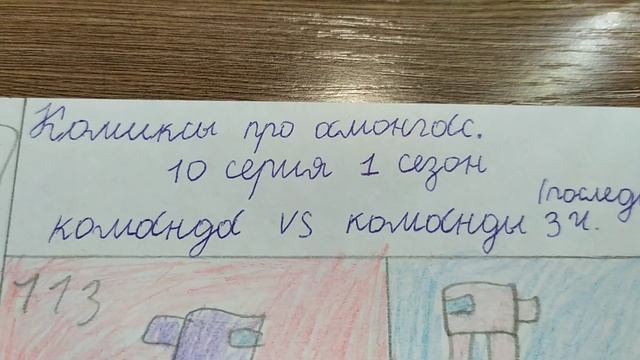 Комиксы про амонгасс.
10 серия 1 сезон
(послед
команда VS команды 3 ч.
113